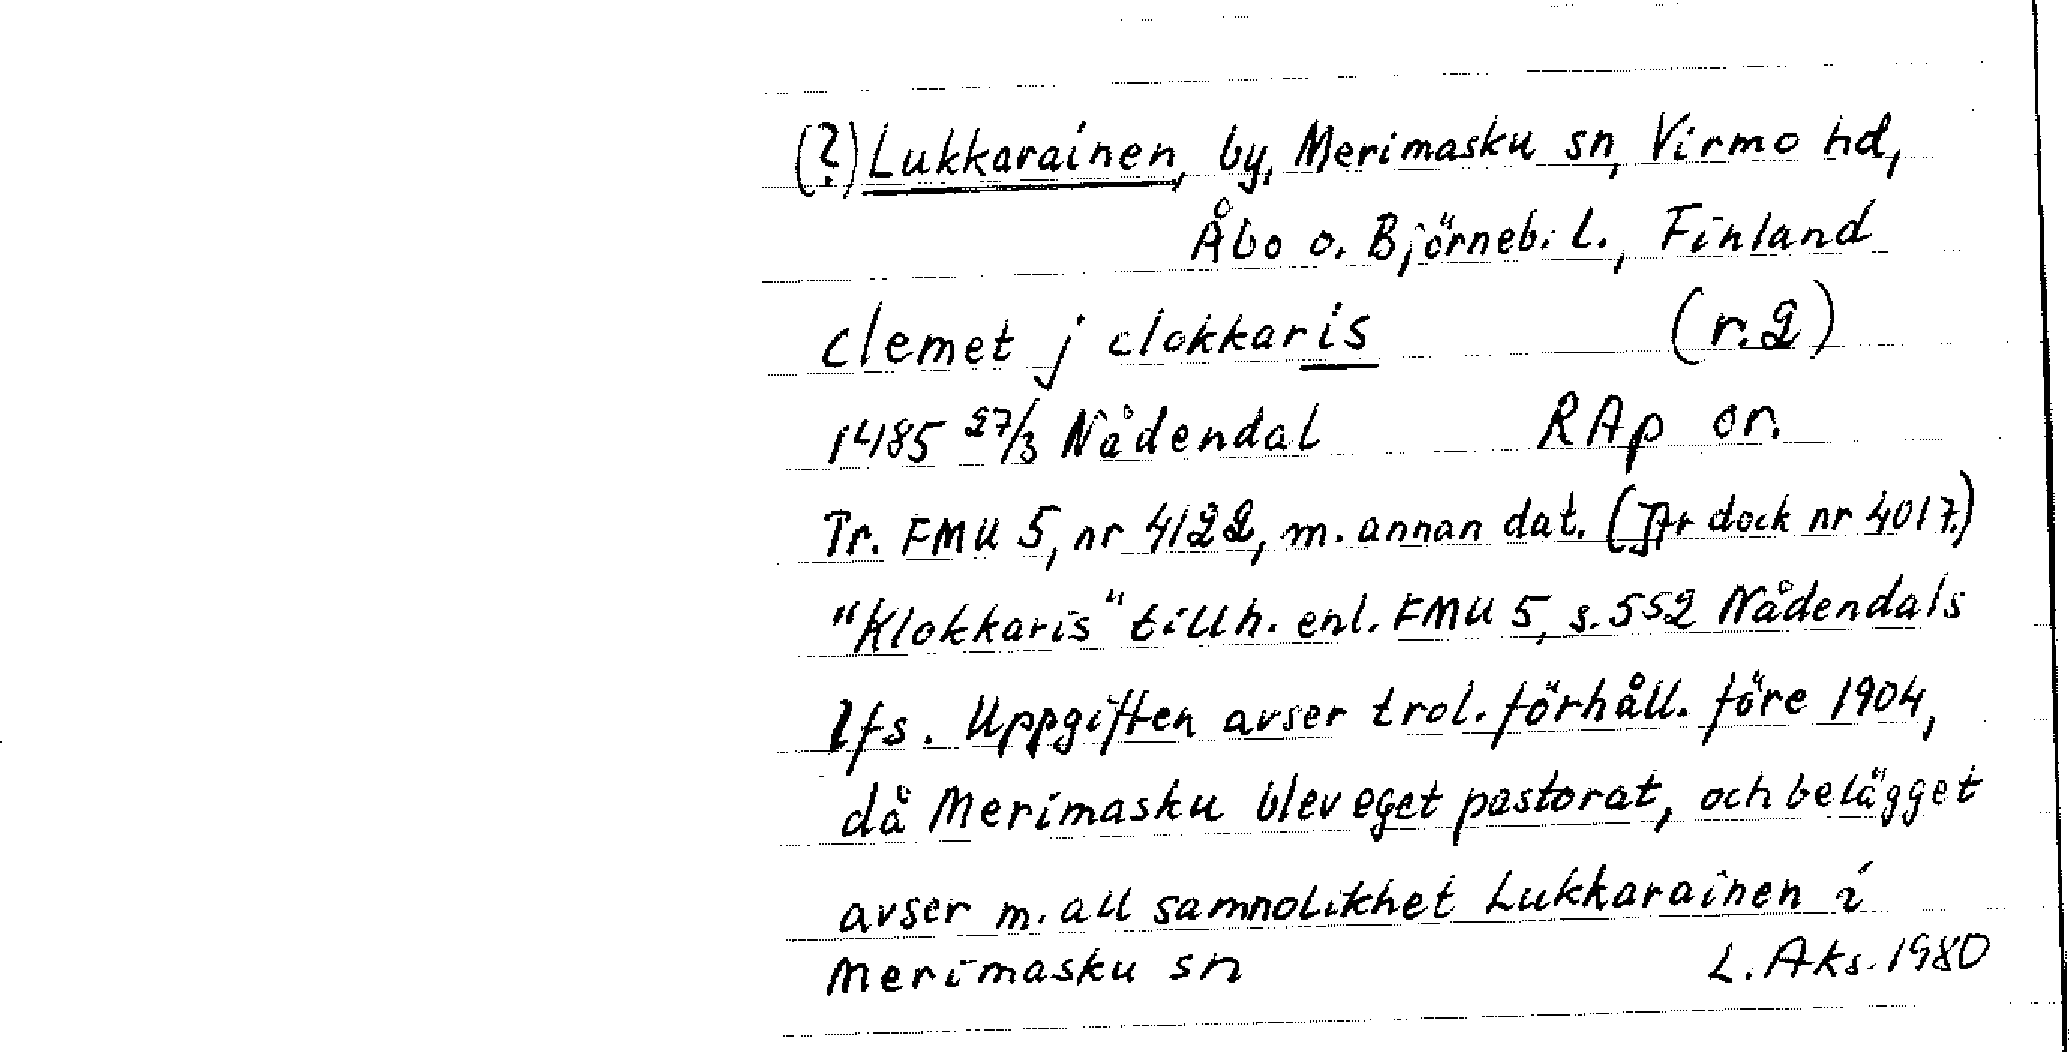 (?) Lukkarainen, by, Merimasku sn, Virmo hd,
Åbo o. Björneb. l., Finland
clemet j clokkaris (r. 2)
1485 27/3 Nådendal RAp or.
Tr. FMU 5, nr 4122, m. annan dat. (Jfr dock nr 4017.)
"Klokkaris" tillh. enl. FMU 5, s. 552 Nådendals
lfs. Uppgiften avser trol. förhåll. före 1904,
då Merimasku blev eget pastorat, och belägget
avser m. all sannolikhet Lukkarainen i
Merimasku sn L. Aks. 1980